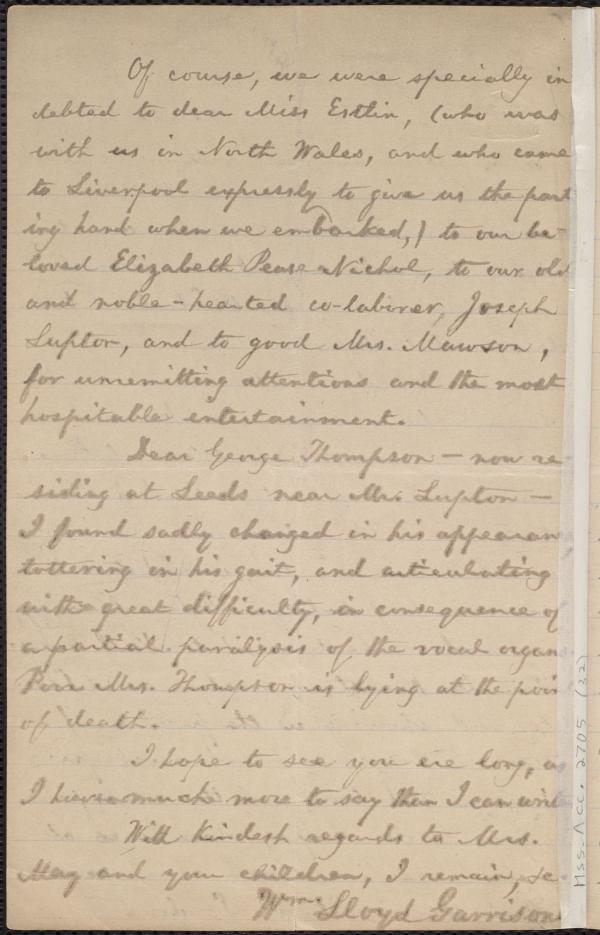 Of course, we were specially in
debted to dear Miss Estlin, (who was
with us in North Wales, and who came
to Liverpool expressly to give us the part
ing hand when we embarked,) to our be-
loved Elizabeth Pease Nichol, to our old
and noble-hearted co-laborer, Joseph
Lupton, and to good Mrs. Mawson,
for unremitting attentions and the most
hospitable entertainment.
Dear George Thompson — now re-
siding at Leeds near Mr. Lupton —
I found sadly changed in his appearan
tottering in his gait, and articulating
with great difficulty, in consequence of
a partial paralysis of the vocal organ
Poor Mrs. Thompson is lying at the poin
of death.
I hope to see you ere long, as
I have much more to say than I can write
With kindest regards to Mrs.
May and your children, I remain, &c.
Wm. Lloyd Garrison
Mss. Acc. 2705 (32)